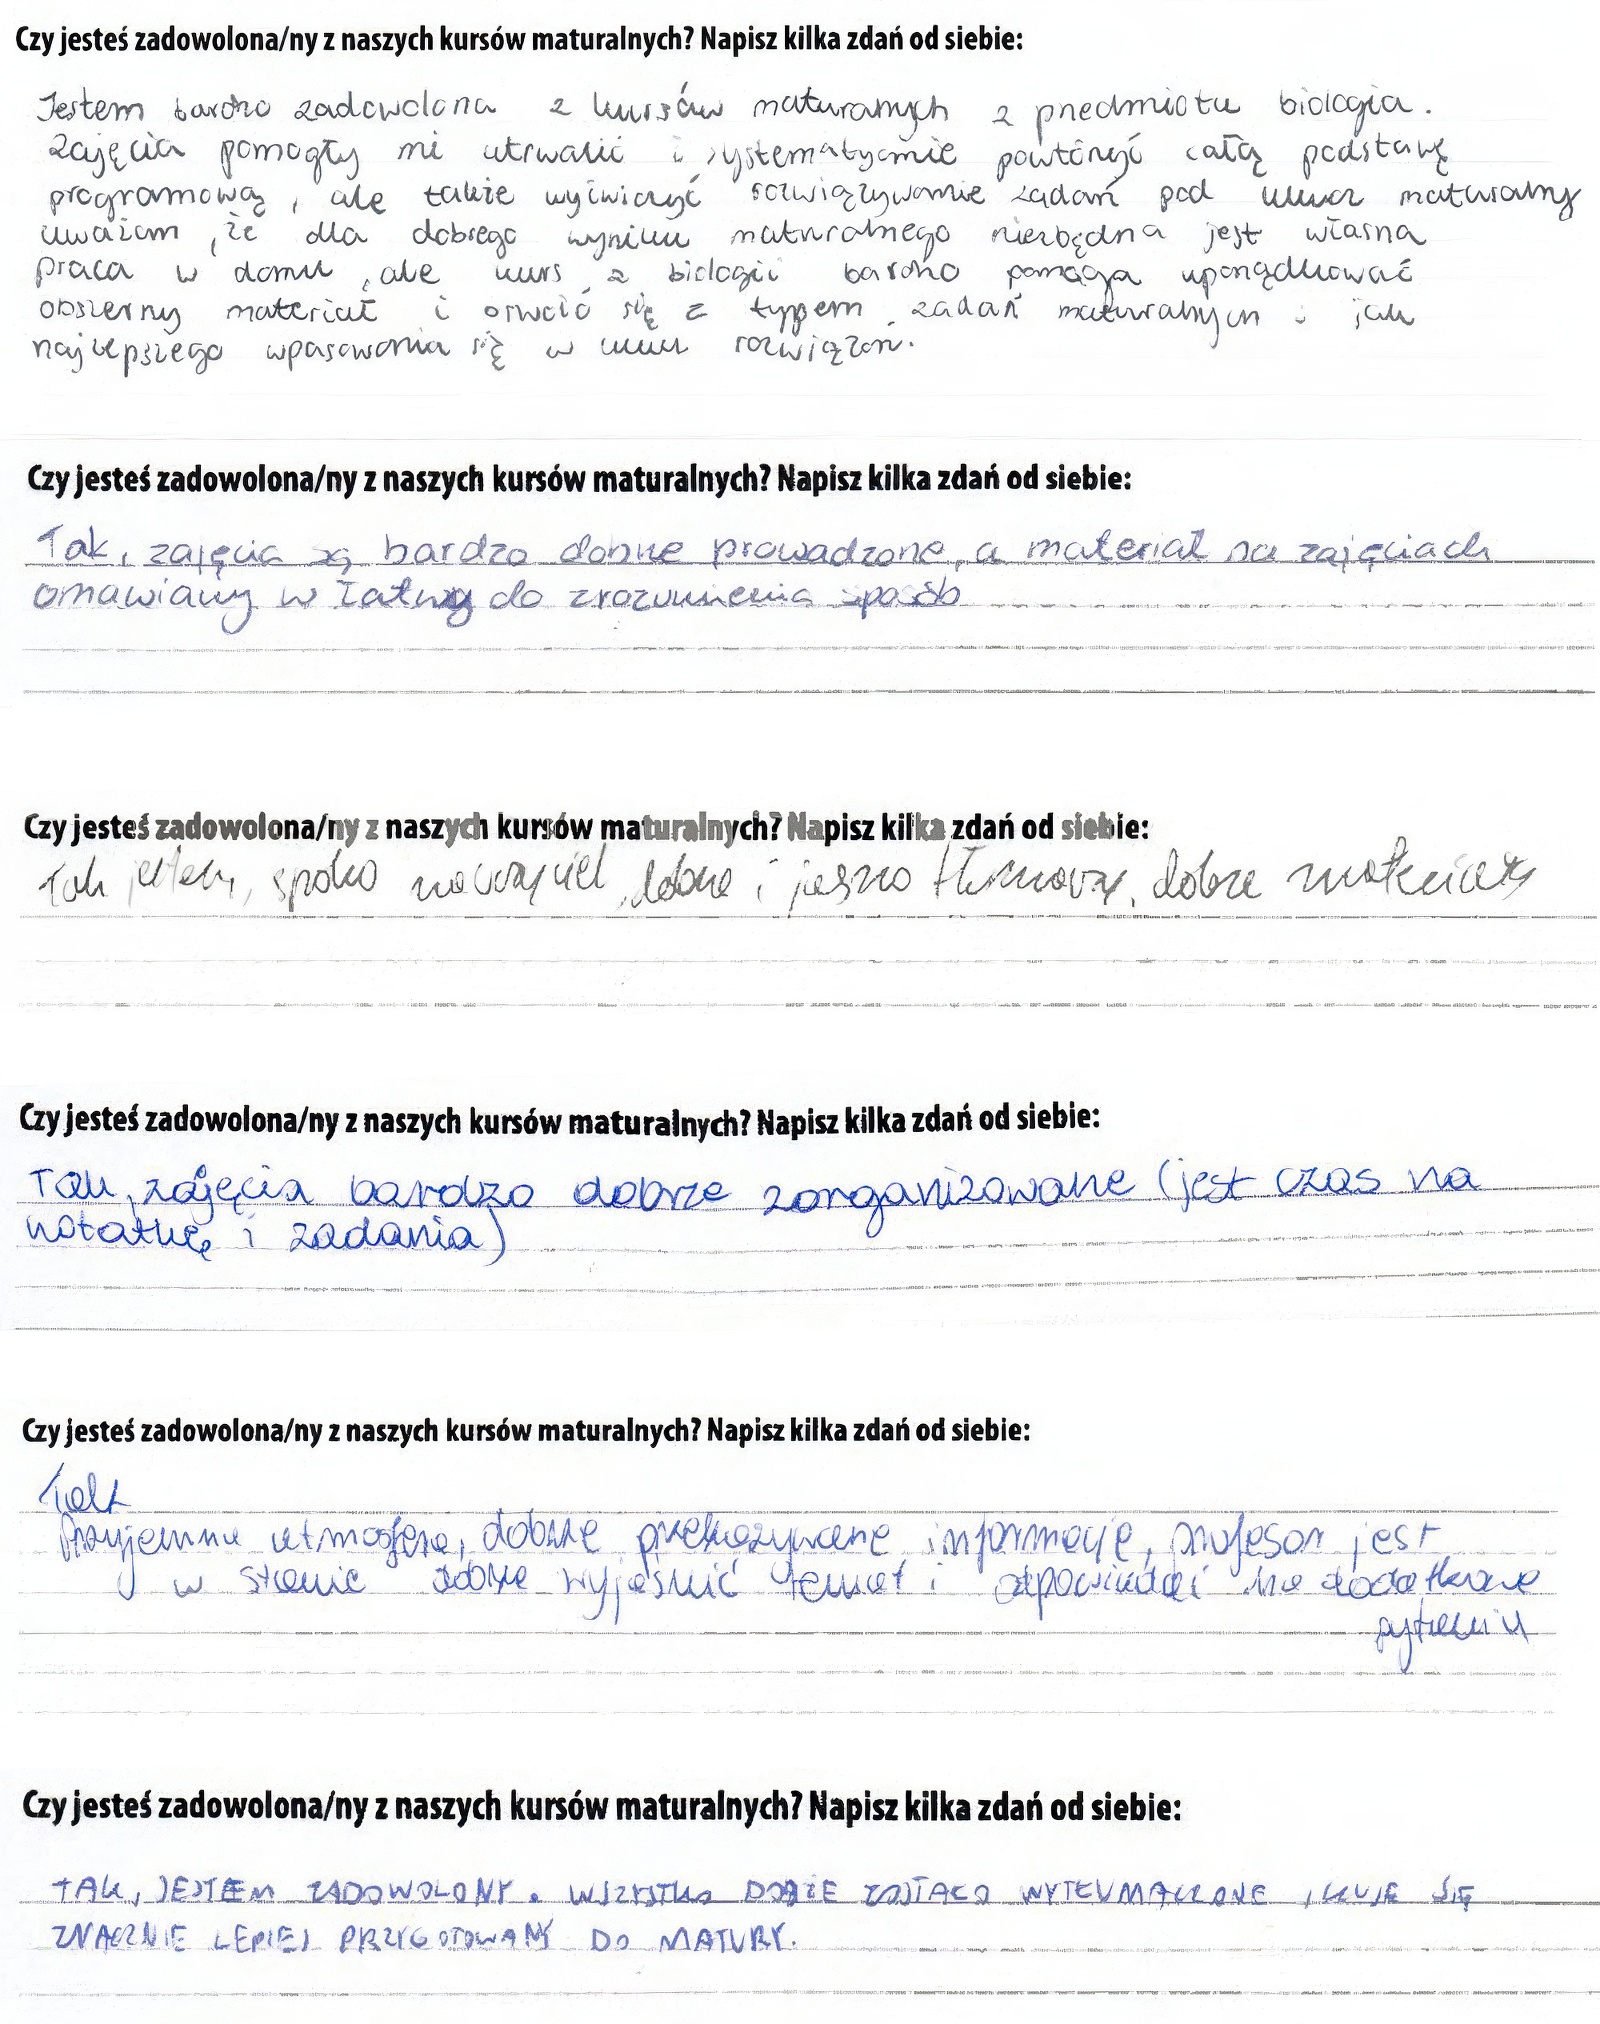 Czy jesteś zadowolona/ny z naszych kursów maturalnych? Napisz kilka zdań od siebie:
Jestem bardzo zadowolona z kursów maturalnych z przedmiotu biologia.
Zajęcia pomogły mi utrwalić i systematycznie powtórzyć całą podstawę
programową, ale także wyćwiczyć rozwiązywanie zadań pod klucz maturalny
uważam, że dla dobrego wyniku maturalnego niezbędna jest własna
praca w domu, ale kurs z biologii bardzo pomaga uporządkować
obszerny materiał i oswoić się z typem zadań maturalnych i jak
najlepszego wpasowania się w klucz rozwiązań.
Czy jesteś zadowolona/ny z naszych kursów maturalnych? Napisz kilka zdań od siebie:
Tak, zajęcia są bardzo dobrze prowadzone, a materiał na zajęciach
omawiany w łatwy do zrozumienia sposób
Czy jesteś zadowolona/ny z naszych kursów maturalnych? Napisz kilka zdań od siebie:
Tak jestem, spoko nauczyciel, dobrze i jasno tłumaczy, dobre materiały
Czy jesteś zadowolona/ny z naszych kursów maturalnych? Napisz kilka zdań od siebie:
Tak, zajęcia bardzo dobrze zorganizowane (jest czas na
notatkę i zadania)
Czy jesteś zadowolona/ny z naszych kursów maturalnych? Napisz kilka zdań od siebie:
Tak
Przyjemna atmosfera, dobrze przekazywane informacje, profesor jest
w stanie dobrze wyjaśnić temat i odpowiedzieć na dodatkowe
pytania
Czy jesteś zadowolona/ny z naszych kursów maturalnych? Napisz kilka zdań od siebie:
TAK, JESTEM ZADOWOLONY. WSZYSTKO DOBRZE ZOSTAŁO WYTŁUMACZONE, CZUJE SIĘ
ZNACZNIE LEPIEJ PRZYGOTOWANY DO MATURY.